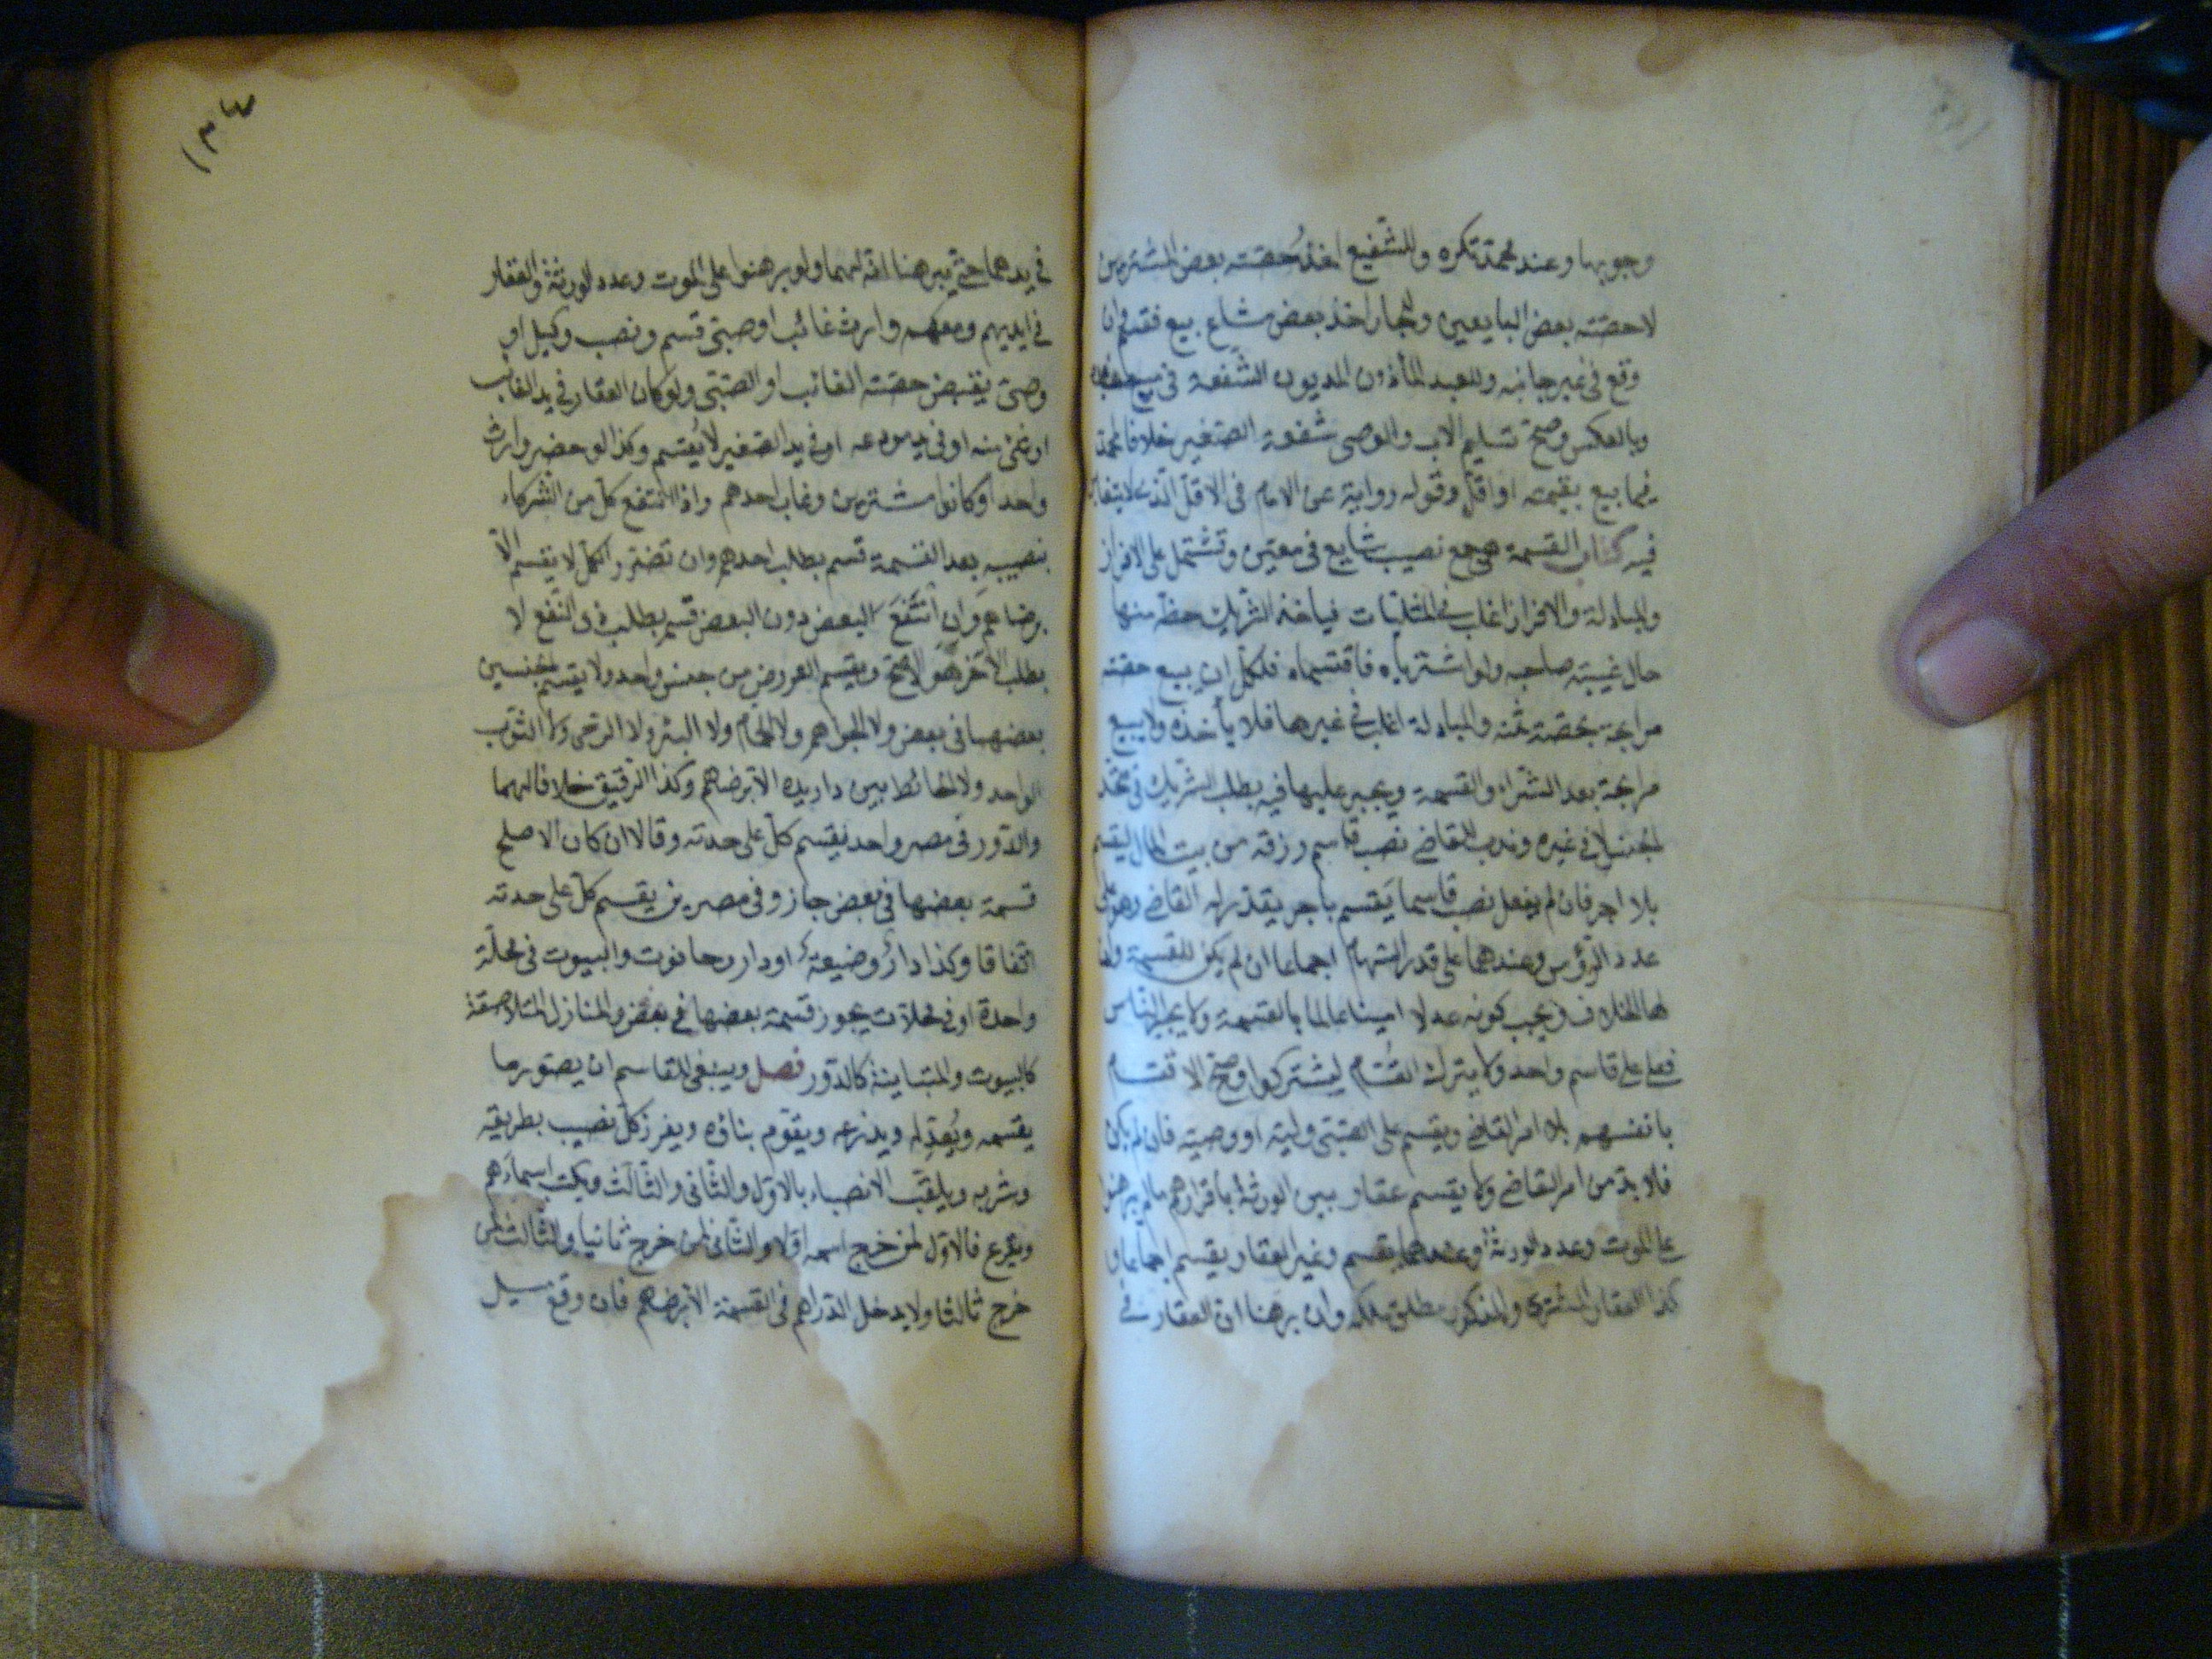 وجوبها وعند محمد تكره وللشفيع اخذ حصته بعض المشترين
لا حصته بعض البايعين وللجار اخذ بعض مشاع بيع فقسم وان
وقع في غير جانبه وللعبد المأذون المديون الشفعة في مبيع
وبالعكس وصح تسليم الاب والوصي شفعة الصغير خلافا لمحمد
فيما بيع بقيمته او اقل وقوله رواية عن الامام في الاقل الذي لا يتغابن
فيه كتاب القسمة هي جمع نصيب شايع في معين وتشتمل على الافراز
والمبادلة والافراز اغلب في المثليات فياخذ الشريك حظه منها
حال غيبة صاحبه ولو اشترياه فاقتسماه فلكل ان يبيع حصته
مرابحة بحصة ثمنه والمبادلة اغلب في غيرها فلا يأخذه ولا يبيع
مرابحة بعد الشراء والقسمة ويجبر عليها فيه بطلب الشريك في متحد
الجنس لا في غيره وندب للقاضي نصب قاسم رزقه من بيت المال ليقسم
بلا اجر فان لم يفعل نصب قاسما يقسم باجر يقدره له القاضي وهو على
عدد الرؤس وعندهما على قدر السهام اجماعا ان لم يكن للقسمة وان
لها الخلاف ويجب كونه عدلا امينا عالما بالقسمة ولا يجبر الناس
على قاسم واحد ولا يترك القسام ليشتركوا وصح الاقتسام
بانفسهم بلا امر القاضي ويقسم على الصبي وليه او وصيه فان لم يكن
فلا بد من امر القاضي ولا يقسم عقار بين الورثة باقرارهم مالم يبرهنوا
على الموت وعدد الورثة وعندهما يقسم وغير العقار يقسم اجماعا و
كذا العقار المشترى والمذكور مطلق ملكه وان برهنا ان العقار في
١٣٤
في يدهما حتى يبرهنا انه لهما ولو برهنوا على الموت وعدد الورثة والعقار
في ايديهم ومعهم وارث غائب او صبي قسم ونصب وكيل او
وصي يقبض حصته الغائب او الصبي ولو كان العقار في يد الغائب
او شئ منه او في يد مودعه او في يد الصغير لا يقسم وكذا لو حضر وارث
واحد او كانوا مشترين وغاب احدهم واذا انتفع كل من الشركاء
بنصيبه بعد القسمة قسم بطلب احدهم وان تضرر الكل لا يقسم الا
برضاهم وان انتفع البعض دون البعض قسم بطلب ذي النفع لا
بطلب الآخر هو الاصح ويقسم العروض من جنس واحد ولا يقسم الجنسين
بعضهما في بعض ولا الجواهر ولا الحمام ولا البئر ولا الرحى ولا الثوب
الواحد ولا الحائط بين دارين الا برضاهم وكذا الرقيق خلافا لهما
والدور في مصر واحد يقسم كل على حدته وقالا ان كان الاصلح
قسمة بعضها في بعض جاز وفي مصرين يقسم كل على حدته
اتفاقا وكذا دار وضيعة او دار وحانوت والبيوت في محلة
واحدة او في محلات يجوز قسمة بعضها في بعض والمنازل المتلاصقة
كالبيوت والمتباينة كالدور فصل وينبغي للقاسم ان يصور ما
يقسمه ويعدله ويذرعه ويقوم بناؤه ويفرز كل نصيب بطريقه
وشربه ويلقب الانصباء بالاول والثاني والثالث ويكتب اسماءهم
ويقرع فالاول لمن خرج اسمه اولا والثاني لمن خرج ثانيا والثالث لمن
خرج ثالثا ولا يدخل الدراهم في القسمة الا برضاهم فان وقع مسيل